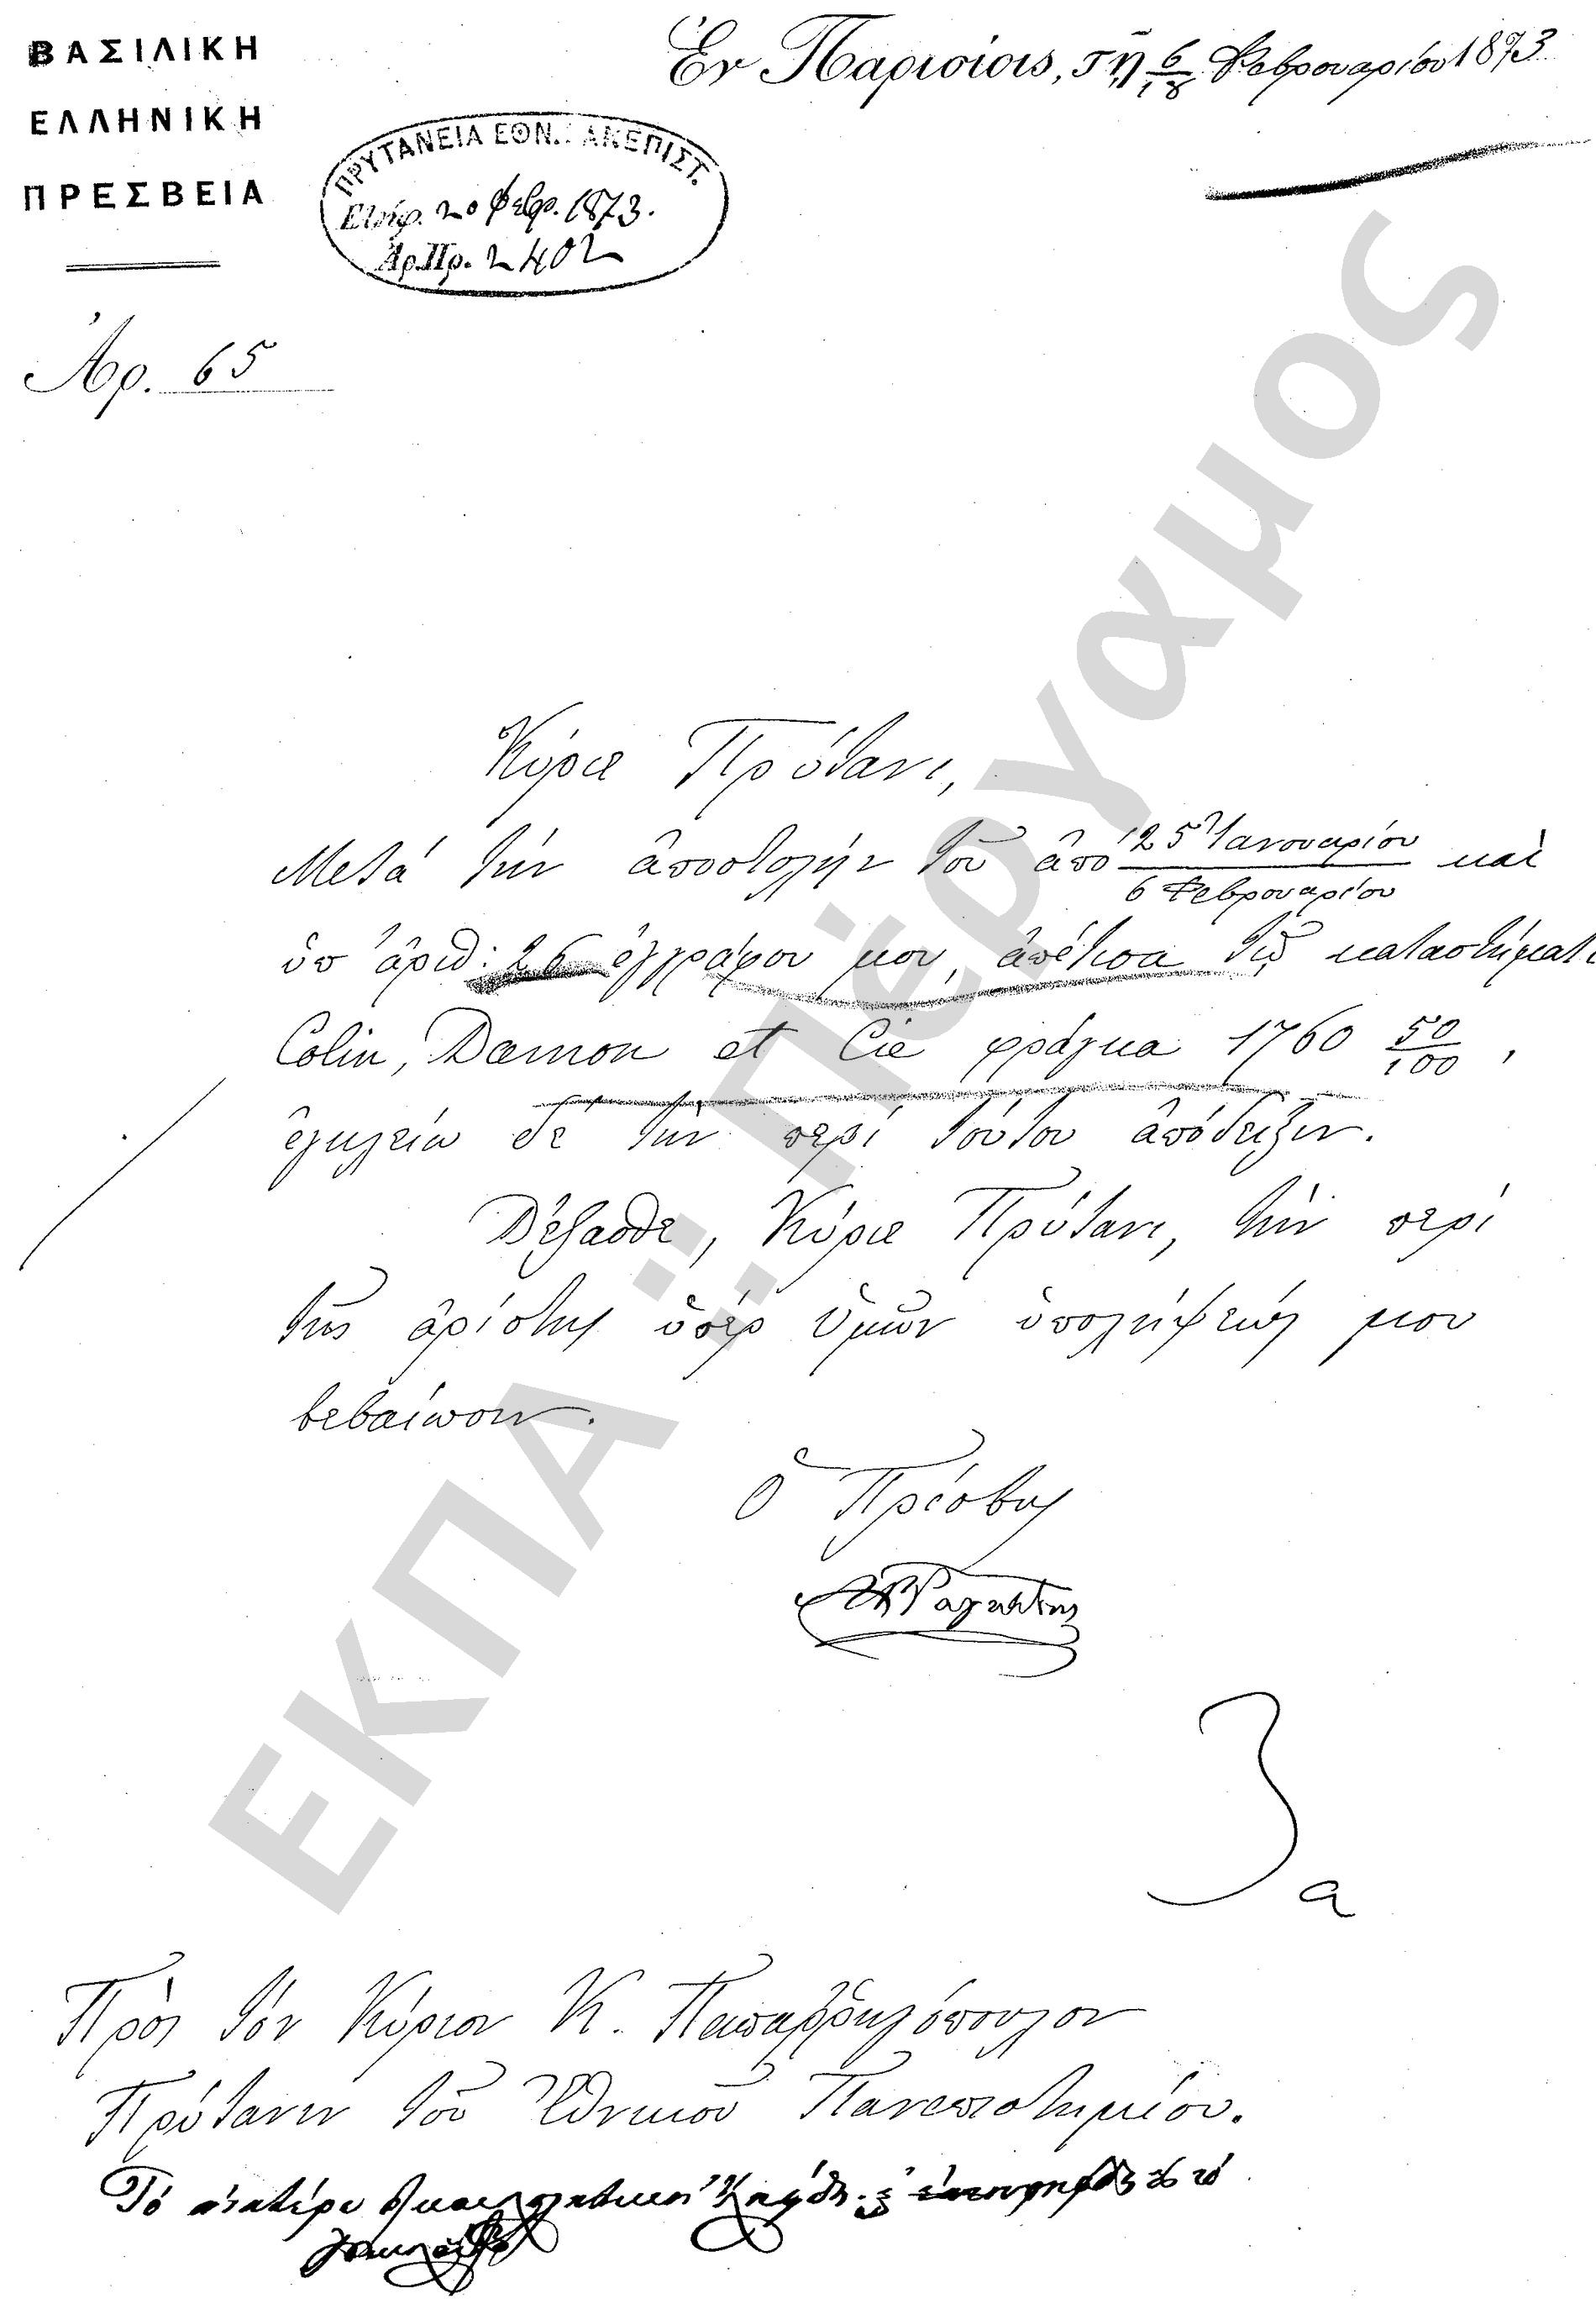 ΒΑΣΙΛΙΚΗ
ΕΛΛΗΝΙΚΗ
ΠΡΕΣΒΕΙΑ
Ἀρ. 65
Ἐν Παρισίοις, τῇ 6/18 Φεβρουαρίου 1873
ΠΡΥΤΑΝΕΙΑ ΕΘΝ. ΠΑΝΕΠΙΣΤ.
Ἐλήφ. 20 Φεβρ. 1873.
Ἀρ.Πρ. 2402
Κύριε Πρύτανι,
Μετὰ τὴν ἀποστολὴν τοῦ ἀπὸ 25 Ἰανουαρίου / 6 Φεβρουαρίου καὶ
ὑπ' ἀριθ: 26 ἐγγράφου μου, ἀπέτισα τῷ καταστήματι
Colin, Damon et Cie φράγκα 1760 50/100,
ἐγκλείω δὲ τὴν περὶ τούτου ἀπόδειξιν.
Δέξασθε, Κύριε Πρύτανι, τὴν περὶ
τῆς ἀρίστης ὑπὲρ ὑμῶν ὑπολήψεώς μου
βεβαίωσιν.
Ὁ Πρέσβυς
ΑΡΡαγκαβῆς
3
α
Πρὸς τὸν Κύριον Κ. Παπαρρηγόπουλον
Πρύτανιν τοῦ Ἐθνικοῦ Πανεπιστημίου.
Τὸ
ΕΚΠΑ :: Πέργαμος